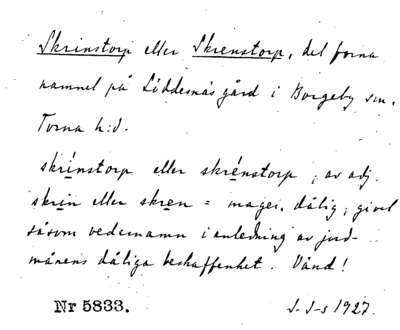 Skrinstorp eller Skrenstorp, det forna
namnet på Löddesnäs gård i Borgeby sn.
Torna h:d.
skrínstorp eller skrénstorp, av adj.
skrin eller skren = mager, dålig; givet
såsom vedernamn i anledning av jord-
månens dåliga beskaffenhet. Vänd!
Nr 5833. S. J-s 1927.